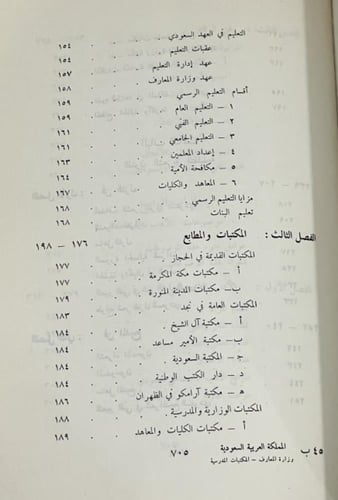 التعليم في العهد السعودي . . . ١٥٤
عقبات التعليم . . . ١٥٤
عهد إدارة التعليم . . . ١٥٧
عهد وزارة المعارف . . . ١٥٨
أقسام التعليم الرسمي . . . ١٥٩
١ - التعليم العام . . . ١٥٩
٢ - التعليم الفني . . . ١٦١
٣ - التعليم الجامعي . . . ١٦١
٤ - إعداد المعلمين . . . ١٦٣
٥ - مكافحة الأمية . . . ١٦٤
٦ - المعاهد والكليات . . . ١٦٧
مزايا التعليم الرسمي . . . ١٦٨
تعليم البنات . . . ١٦٨
الفصل الثالث : المكتبات والمطابع ١٧٦ - ١٩٨
المكتبات القديمة في الحجاز . . . ١٧٧
أ - مكتبات مكة المكرمة . . . ١٧٧
ب - مكتبات المدينة المنورة . . . ١٧٩
المكتبات العامة في نجد . . . ١٨٣
أ - مكتبة آل الشيخ . . . ١٨٤
ب - مكتبة الأمير مساعد . . . ١٨٤
ج - المكتبة السعودية . . . ١٨٤
د - دار الكتب الوطنية . . . ١٨٤
ه - مكتبة آرامكو في الظهران . . . ١٨٦
المكتبات الوزارية والمدرسية . . . ١٨٨
أ - مكتبات الكليات والمعاهد . . . ١٨٩
٧٠٥
المملكة العربية السعودية
وزارة المعارف - المكتبات المدرسية
٤٥ ب